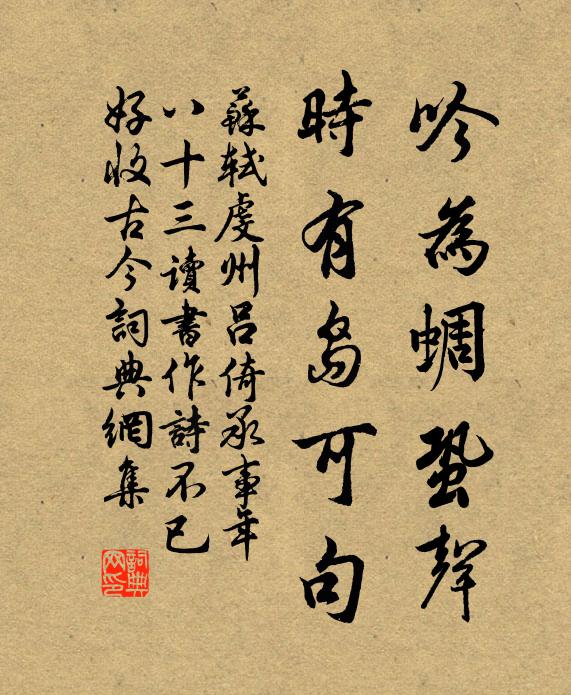 吟為蜩蛩聲
時有島可句
蘇軾虔州呂倚承事年
八十三讀書作詩不已
好收古今詞典網集
詞典網印